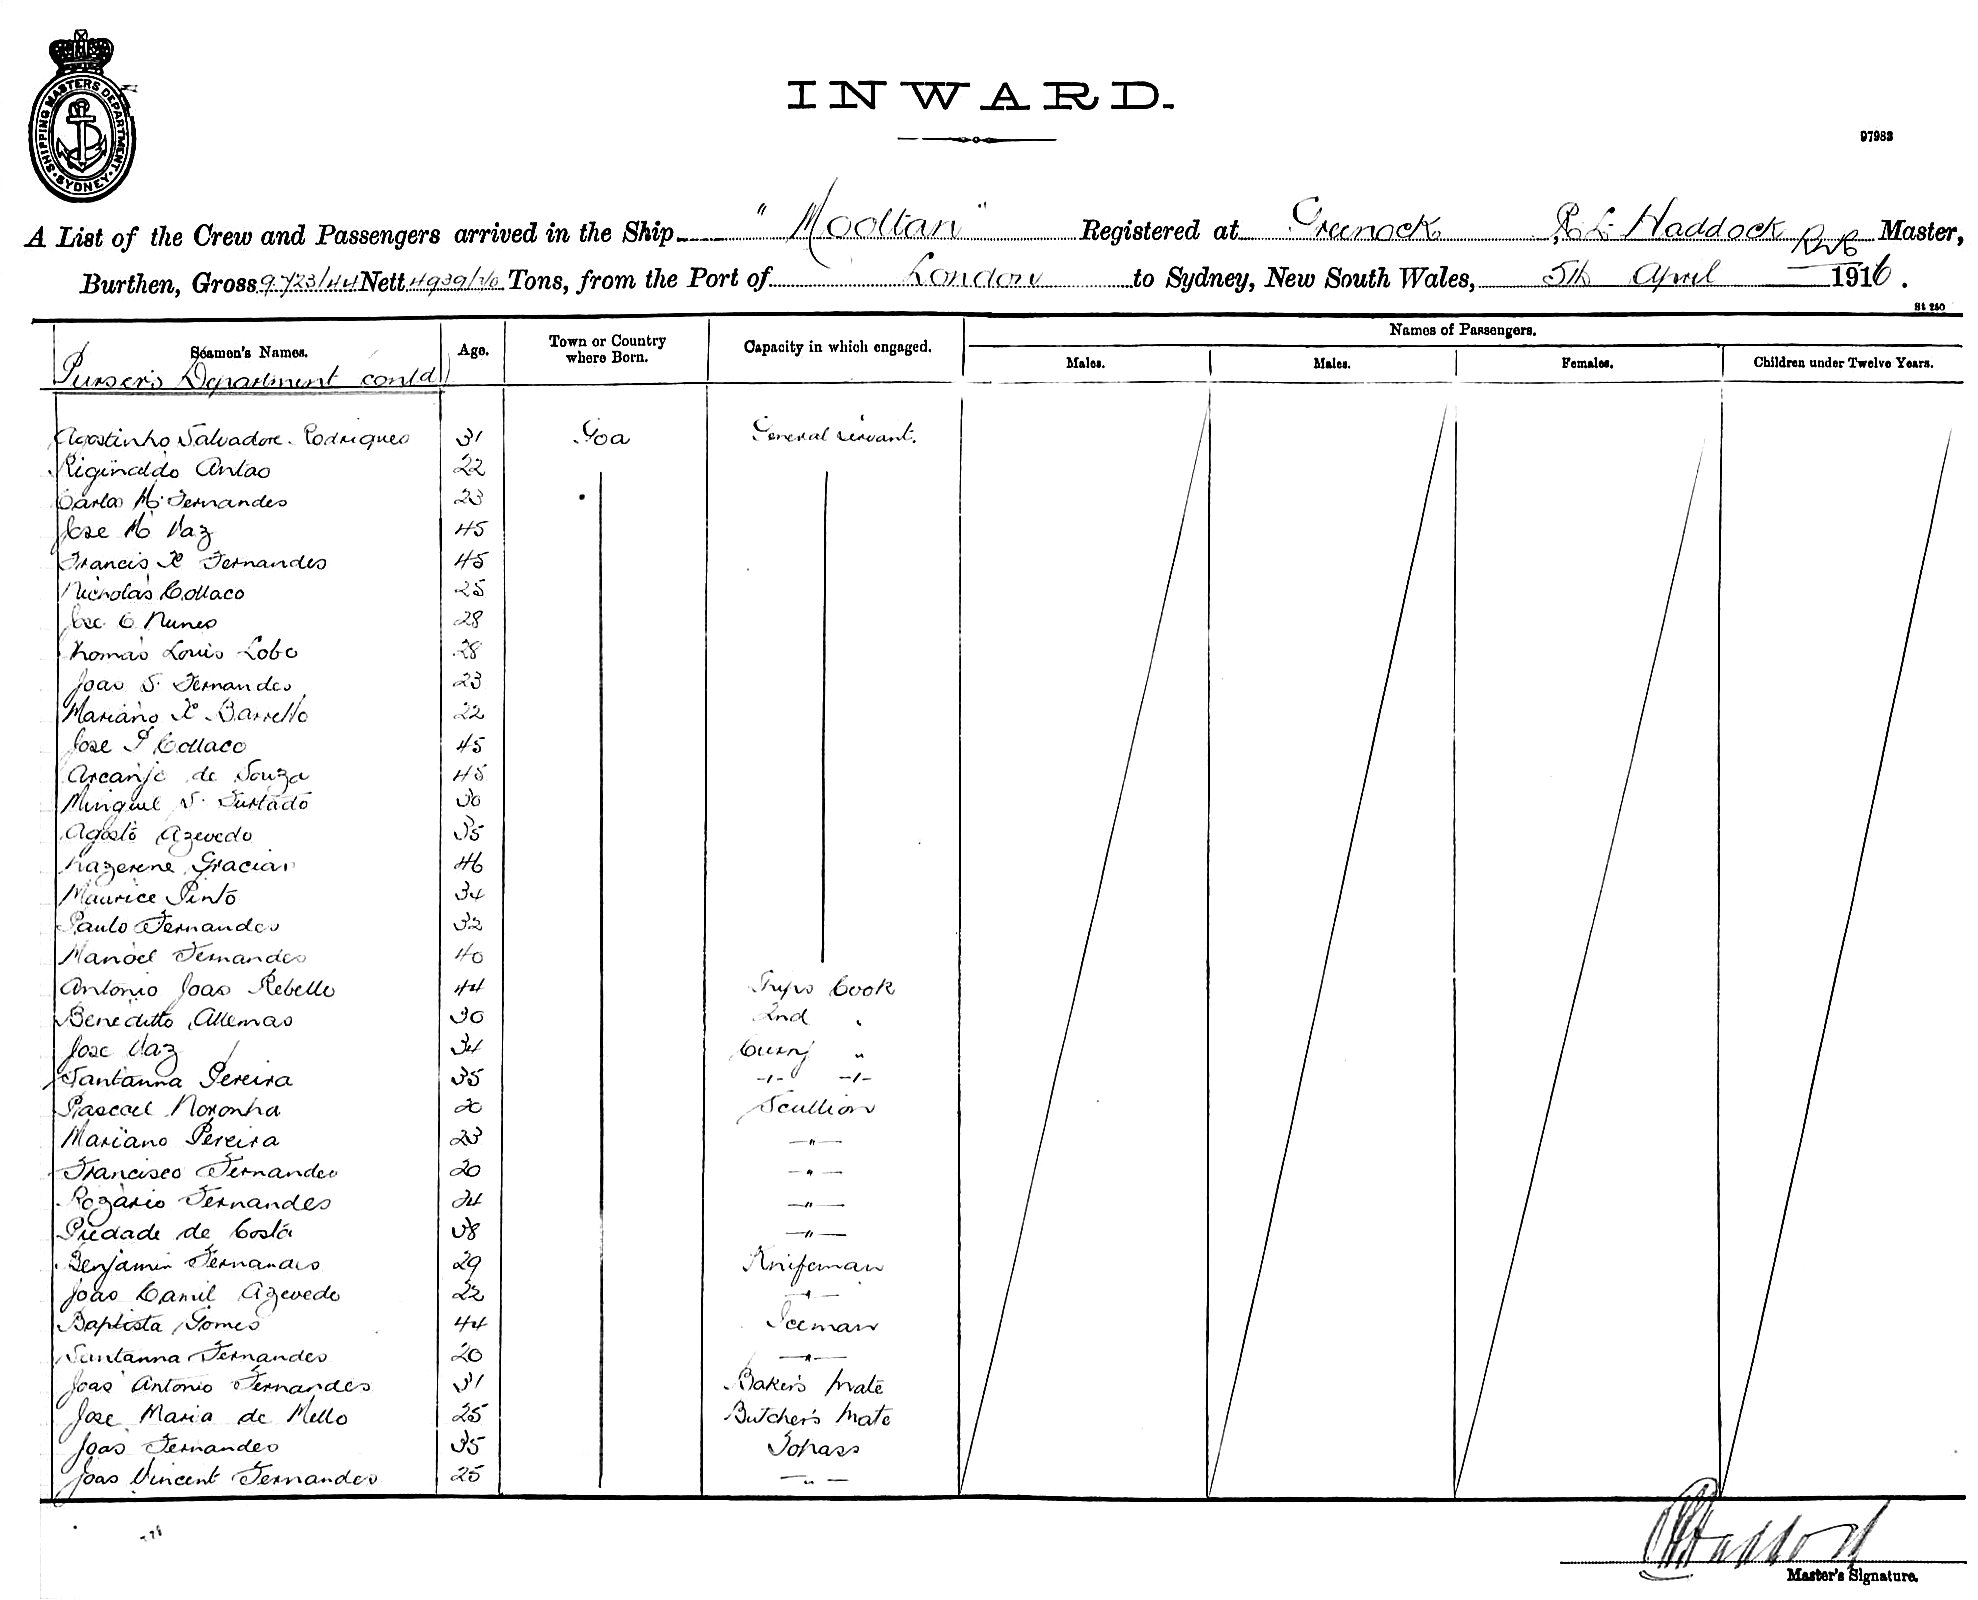 SHIPPING MASTERS DEPARTMENT. SYDNEY
INWARD.
97983
A List of the Crew and Passengers arrived in the Ship "Mooltan" Registered at Greenock R L Haddock RNR Master,
Burthen, Gross 9723/44 Nett 4939/ Tons, from the Port of London to Sydney, New South Wales, 5th April 1916.
Seamen's Names. Age. Town or Country where Born. Capacity in which engaged. Names of Passengers.
Males. Males. Females. Children under Twelve Years.
Purser's Department contd
Agostinho Salvadore Rodrigues 31 Goa General servant.
Riginaldo Antao 22
Carlo M. Fernandes 23
Jose M Vaz 45
Francis X Fernandes 45
Nicholas Collaco 25
Jose C Nunes 28
Thomas Louis Lobo 28
Joao S. Fernandes 23
Mariano X Barretto 22
Jose P Collaco 45
Arcanjo de Souza 45
Minguel S. Furtado 30
Agosto Azevedo 35
Nazerene Gracias 46
Maurice Pinto 34
Paulo Fernandes 32
Manoel Fernandes 40
Antonio Joao Rebello 44 Ships Cook
Beneditto Allemao 30 2nd "
Jose Vaz 34 Curry "
Santanna Pereira 35 -"- -"-
Pascoal Noronha 20 Scullion
Mariano Pereira 23 -"-
Francisco Fernandes 20 -"-
Rozario Fernandes 24 -"-
Piedade de Costa 38 -"-
Benjamin Fernandes 29 Knifeman
Joao Camil Azevedo 22 -"-
Baptista Gomes 44 Iceman
Santanna Fernandes 20 -"-
Joao Antonio Fernandes 31 Baker's Mate
Jose Maria de Mello 25 Butcher's Mate
Joao Fernandes 35 Topass
Joao Vincent Fernandes 25 -"-
Haddock
Master's Signature.